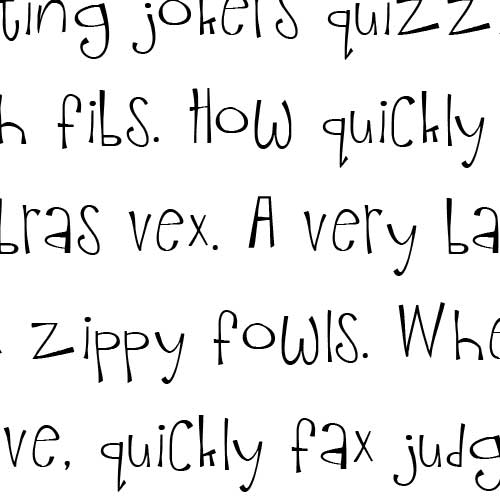 ting jokers quizz
h fibs. How quickly
bras vex. A very ba
zippy fowls. Whe
ve, quickly fax judg